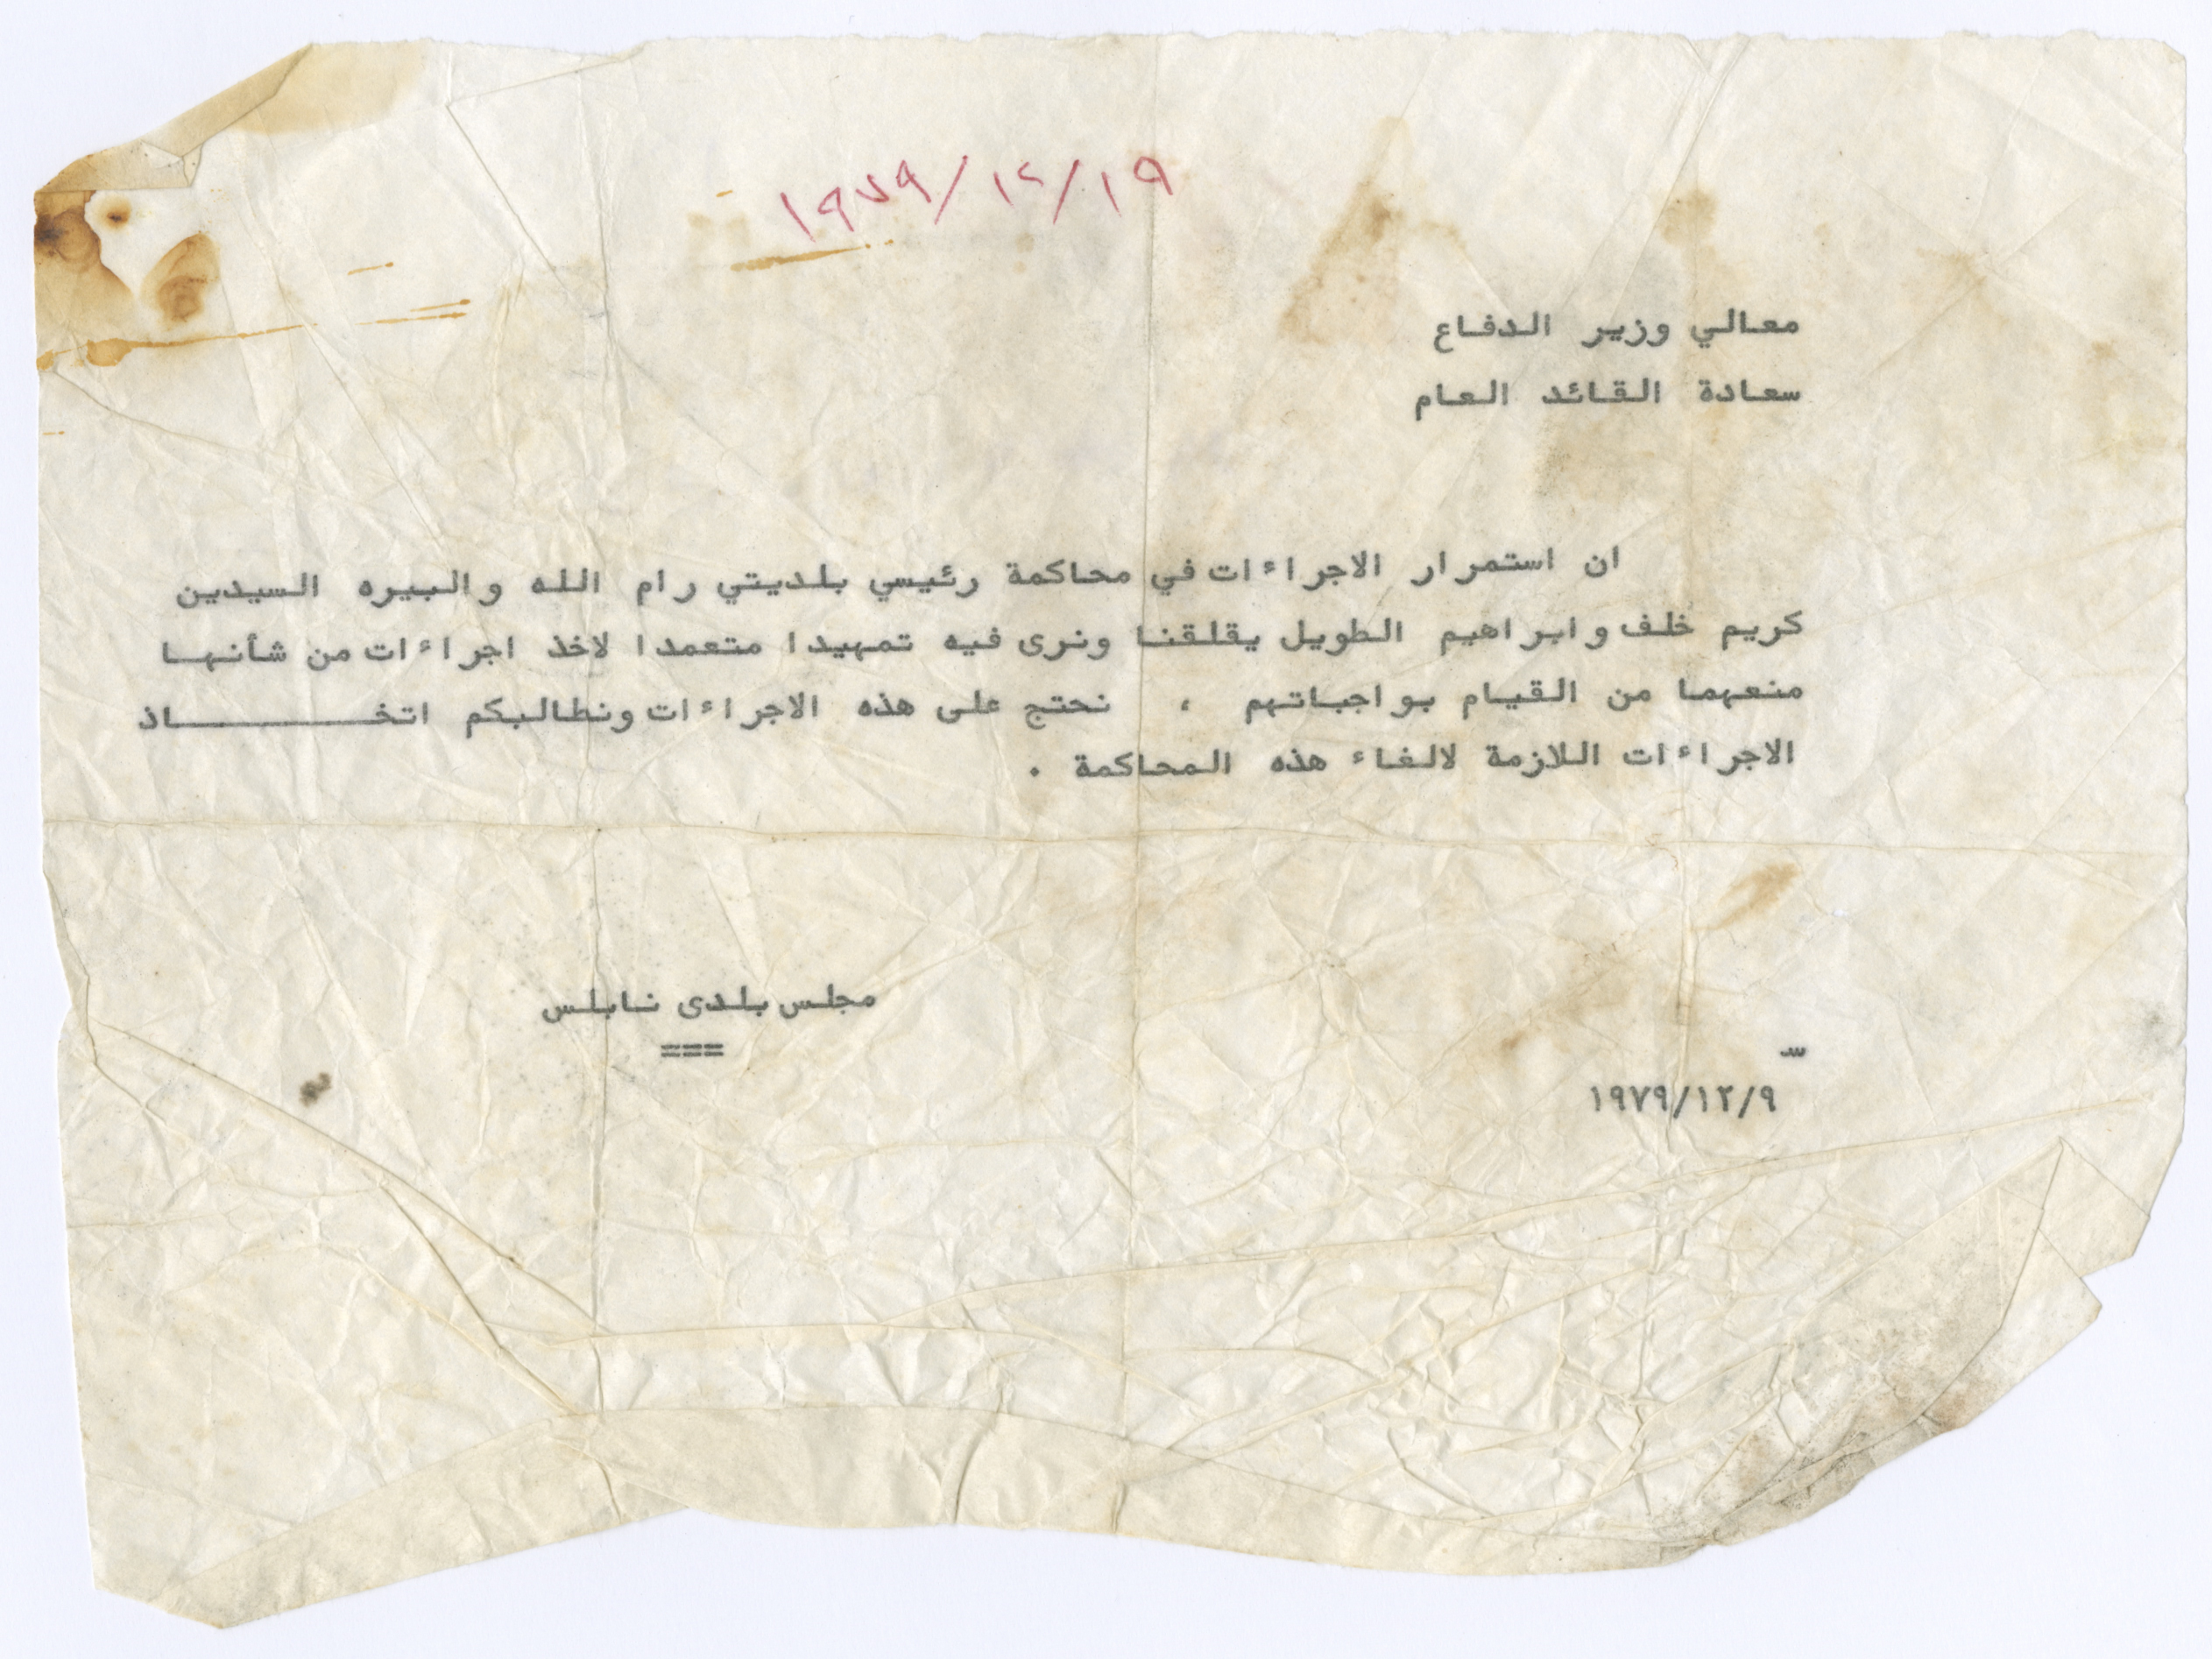 ١٩٧٩/١٢/١٩
معالي وزير الدفاع
سعادة القائد العام
ان استمرار الاجراءات في محاكمة رئيسي بلديتي رام الله والبيره السيدين
كريم خلف وابراهيم الطويل يقلقنا ونرى فيه تمهيدا متعمدا لاخذ اجراءات من شأنها
منعهما من القيام بواجباتهم ، نحتج على هذه الاجراءات ونطالبكم اتخـــــــــاذ
الاجراءات اللازمة لالغاء هذه المحاكمة .
مجلس بلدى نابلس
===
س
١٩٧٩/١٢/٩